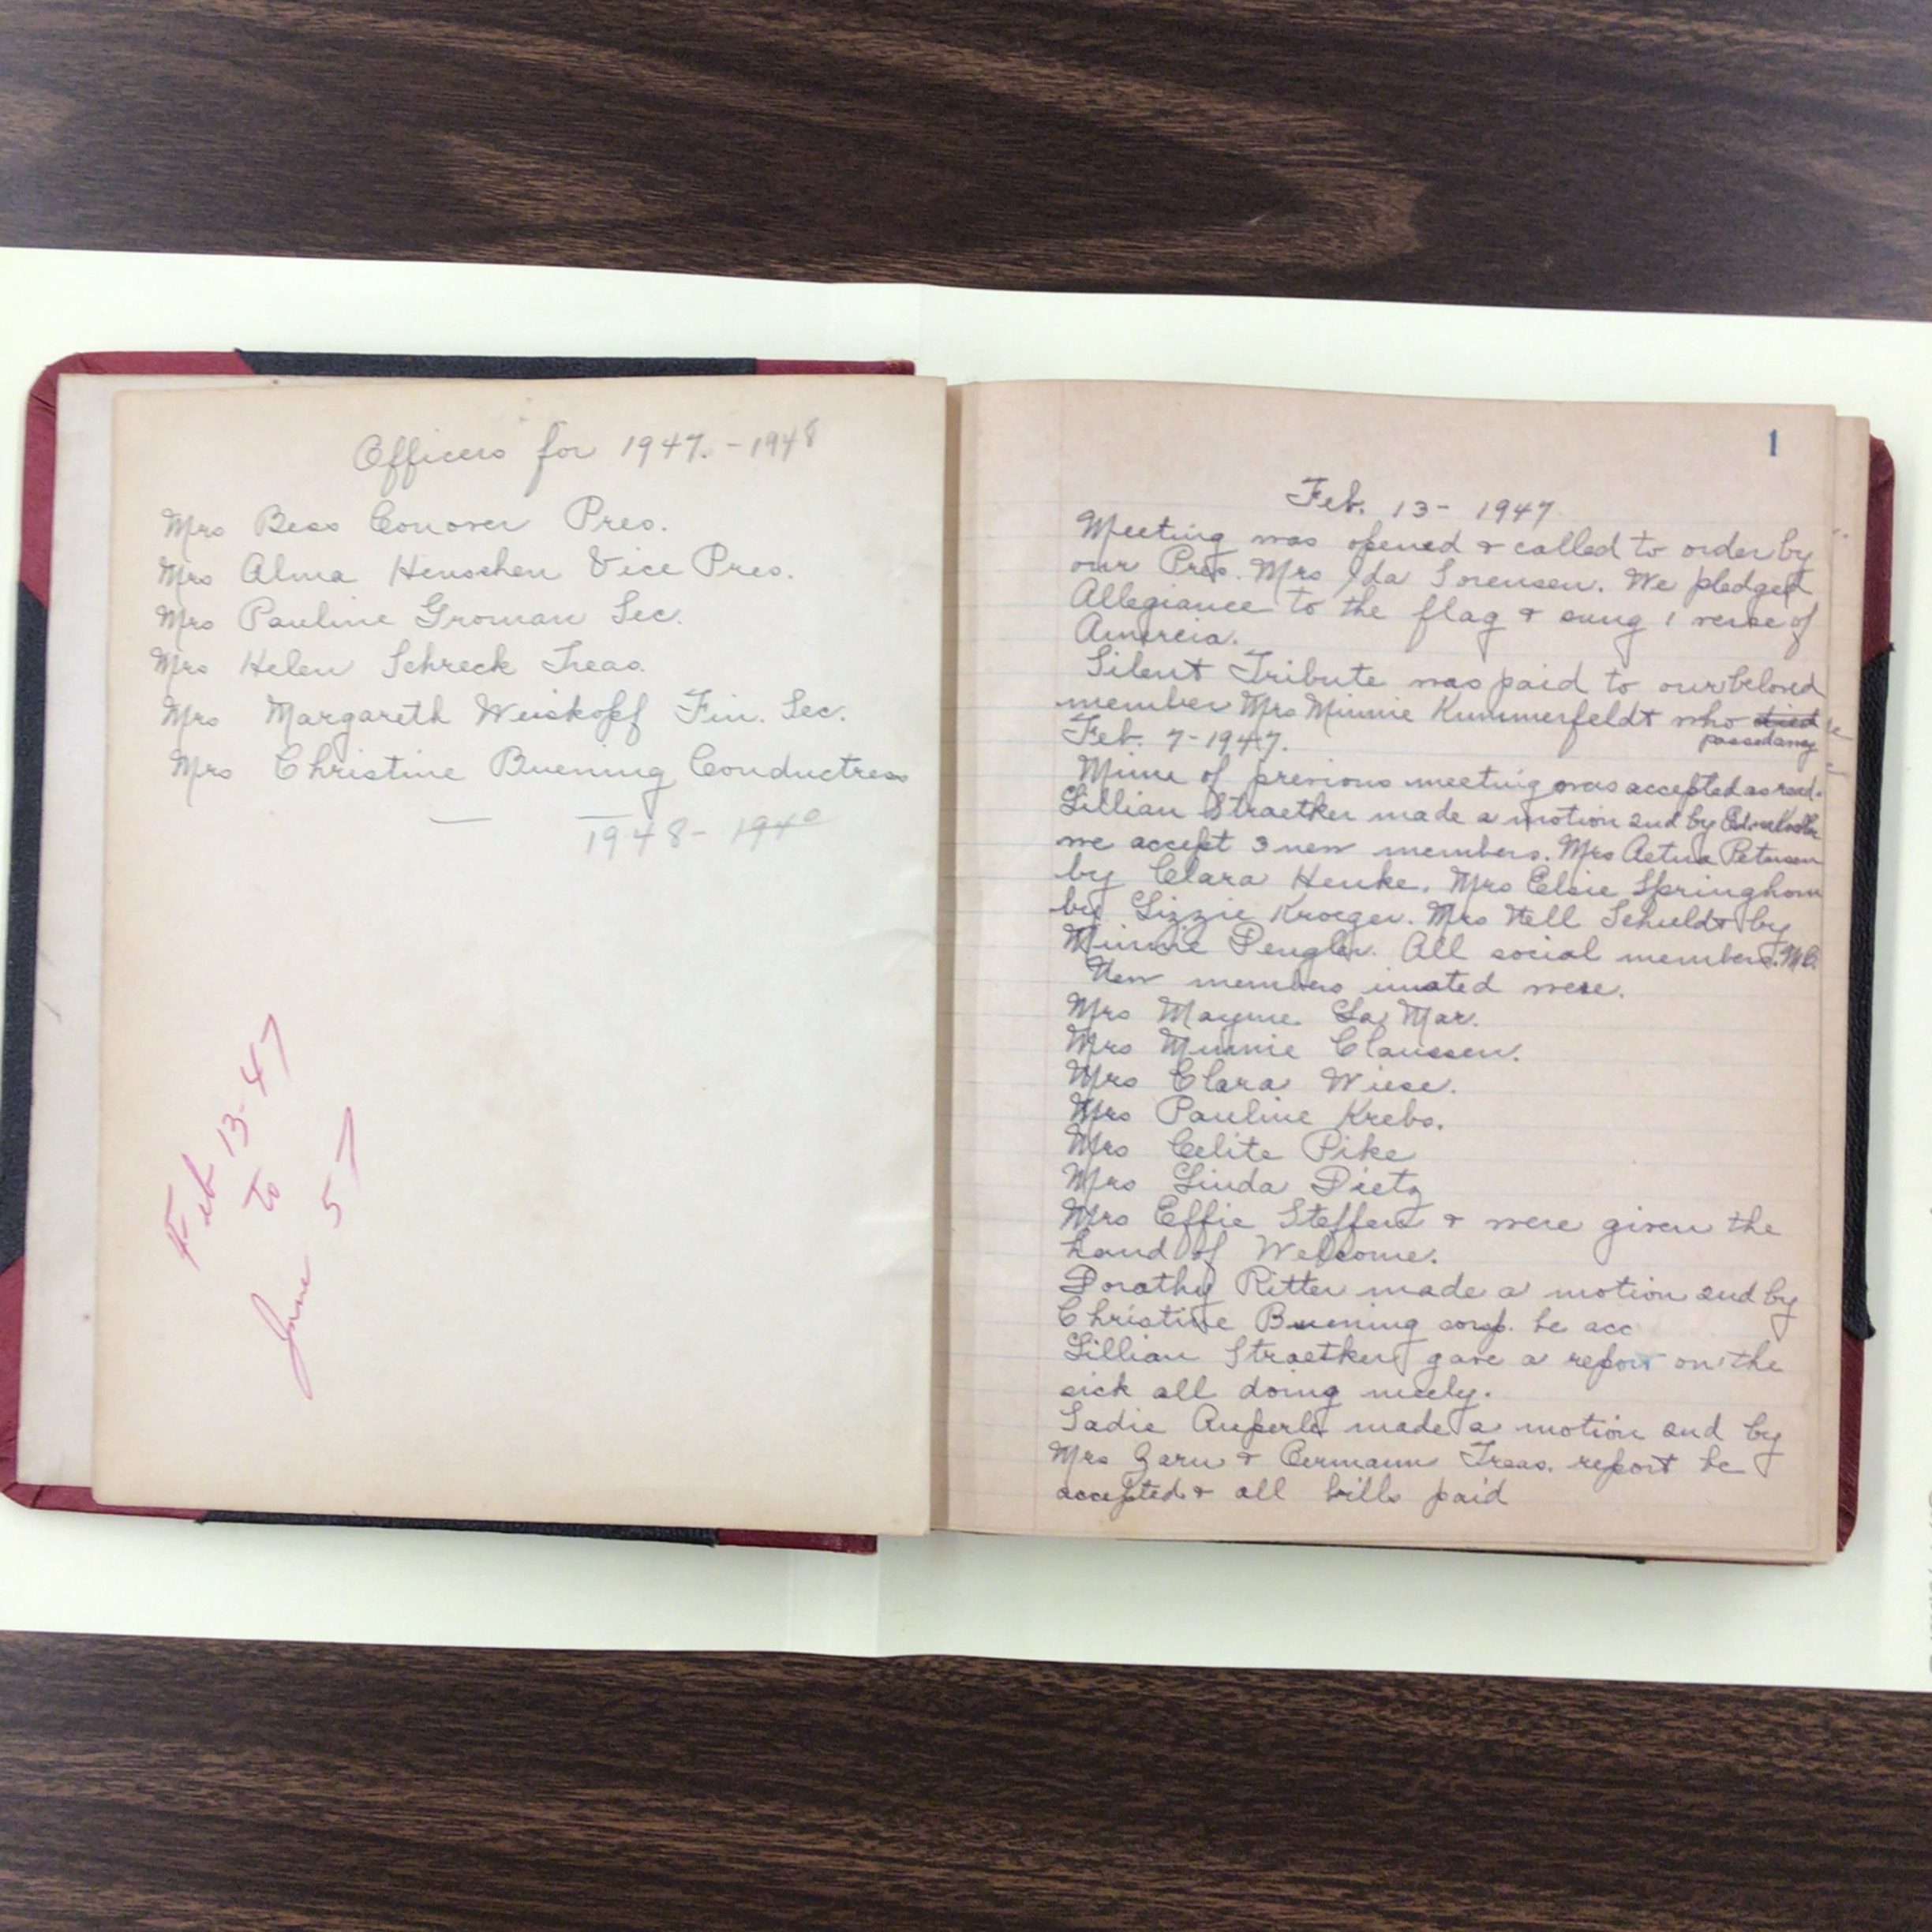 Officers for 1947. - 1948
Mrs Bess Conover Pres.
Mrs Alma Henschen Vice Pres.
Mrs Pauline Groman Sec.
Mrs Helen Schreck Treas.
Mrs Margareth Weiskopf Fin. Sec.
Mrs Christine Buening Conductress
1948 - 194
Feb 13-47
to
June 57
1
Feb. 13 - 1947
Meeting was opened & called to order by
our Pres. Mrs Ida Sorensen. We pledged
Allegiance to the flag & sung 1 verse of
Amercia.
Silent Tribute was paid to our beloved
member Mrs Minnie Kummerfeldt who died
passed away
Feb. 7-1947.
of previous meeting was accepted as read.
Lillian Straetker made a motion 2nd by
we accept 3 new members. Mrs Aetna Petersen
by Clara Henke. Mrs Elsie Springhorn
by Lizzie Kroeger. Mrs Nell Schuldt by
Minnie Dengler. All social members.
New members were.
Mrs Mayme La Mar.
Mrs Minnie Claussen.
Mrs Clara Wiese.
Mrs Pauline Krebs.
Mrs Celite Pike
Mrs Linda Dietz
Mrs Effie Steffens & were given the
hand of Welcome.
Dorathy Ritter made a motion 2nd by
Christine Buening be acc
Lillian Straetker gave a report on the
sick all doing nicely.
Sadie Auperle made a motion 2nd by
Mrs Zarn & Treas. report be
accepted & all bills paid